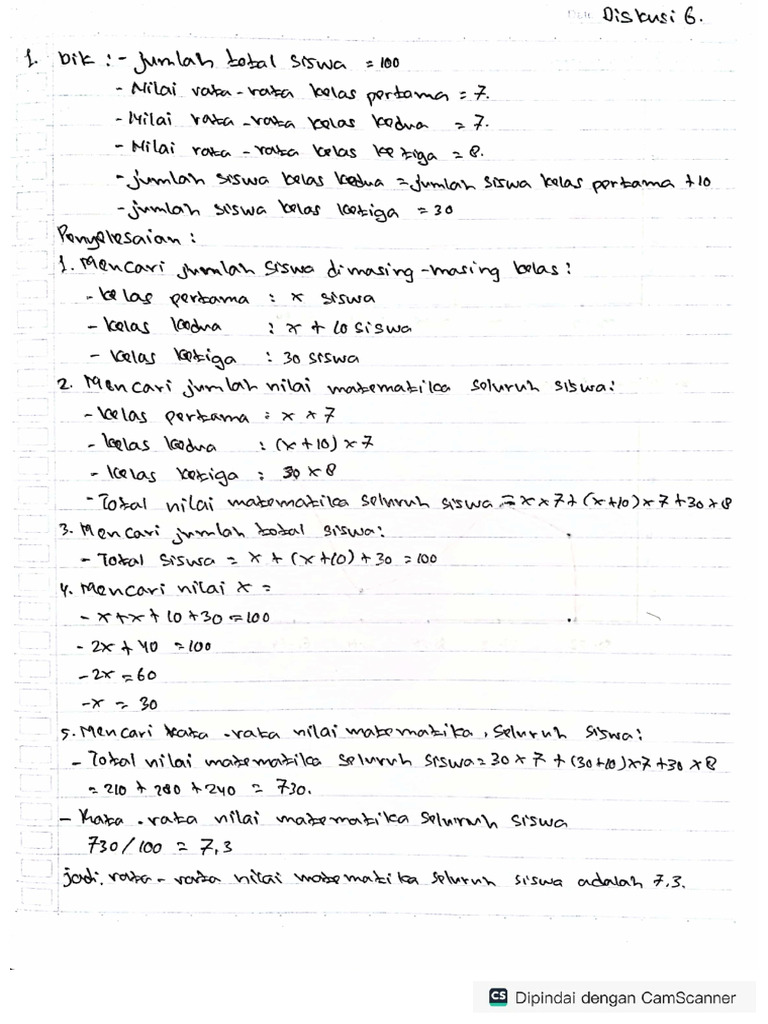 Diskusi 6.
1. Dik : - Jumlah total siswa = 100
- Nilai rata-rata kelas pertama = 7.
- Nilai rata-rata kelas kedua = 7.
- Nilai rata-rata kelas ketiga = 8.
- jumlah siswa kelas kedua = jumlah siswa kelas pertama +10
- jumlah siswa kelas ketiga = 30
Penyelesaian :
1. Mencari jumlah siswa dimasing-masing kelas :
- kelas pertama : x siswa
- kelas kedua : x + 10 siswa
- kelas ketiga : 30 siswa
2. Mencari jumlah nilai matematika seluruh siswa :
- kelas pertama : x × 7
- kelas kedua : (x+10) × 7
- kelas ketiga : 30 × 8
- Total nilai matematika seluruh siswa = x × 7 + (x+10) × 7 + 30 × 8
3. Mencari jumlah total siswa :
- Total siswa = x + (x+10) + 30 = 100
4. Mencari nilai x =
- x+x+10+30 = 100
- 2x + 40 = 100
- 2x = 60
- x = 30
5. Mencari Rata-rata nilai matematika, seluruh siswa :
- Total nilai matematika seluruh siswa = 30 × 7 + (30+10)×7 + 30 × 8
= 210 + 280 + 240 = 730.
- Rata-rata nilai matematika seluruh siswa
730/100 = 7,3
jadi, rata-rata nilai matematika seluruh siswa adalah 7,3.
CS Dipindai dengan CamScanner